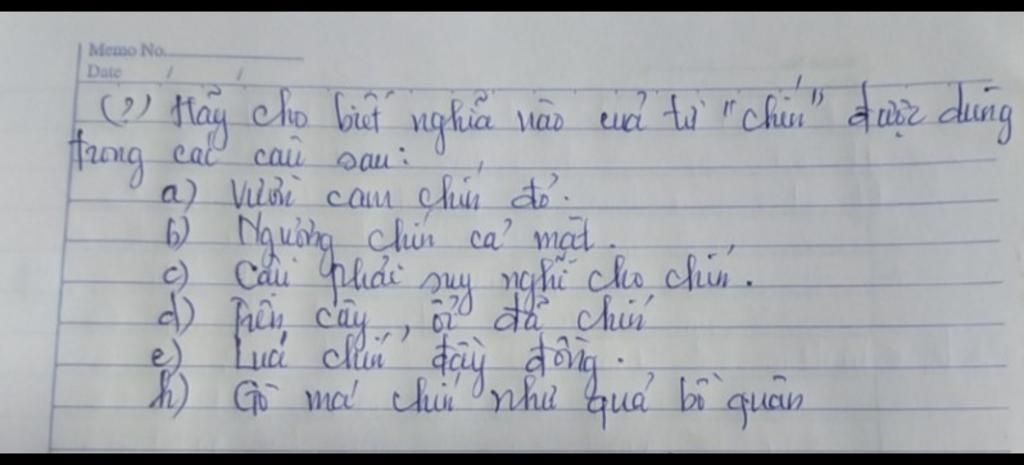 Memo No.
Date / /
(?) Hãy cho biết nghĩa nào của từ "chín" được dùng
trong các câu sau:
a) Vườn cam chín đỏ.
b) Ngượng chín cả mặt.
c) Cần phải suy nghĩ cho chín.
d) Trên cây, ổi đã chín
e) Lúa chín đầy đồng.
h) Gò má chín như quả bồ quân